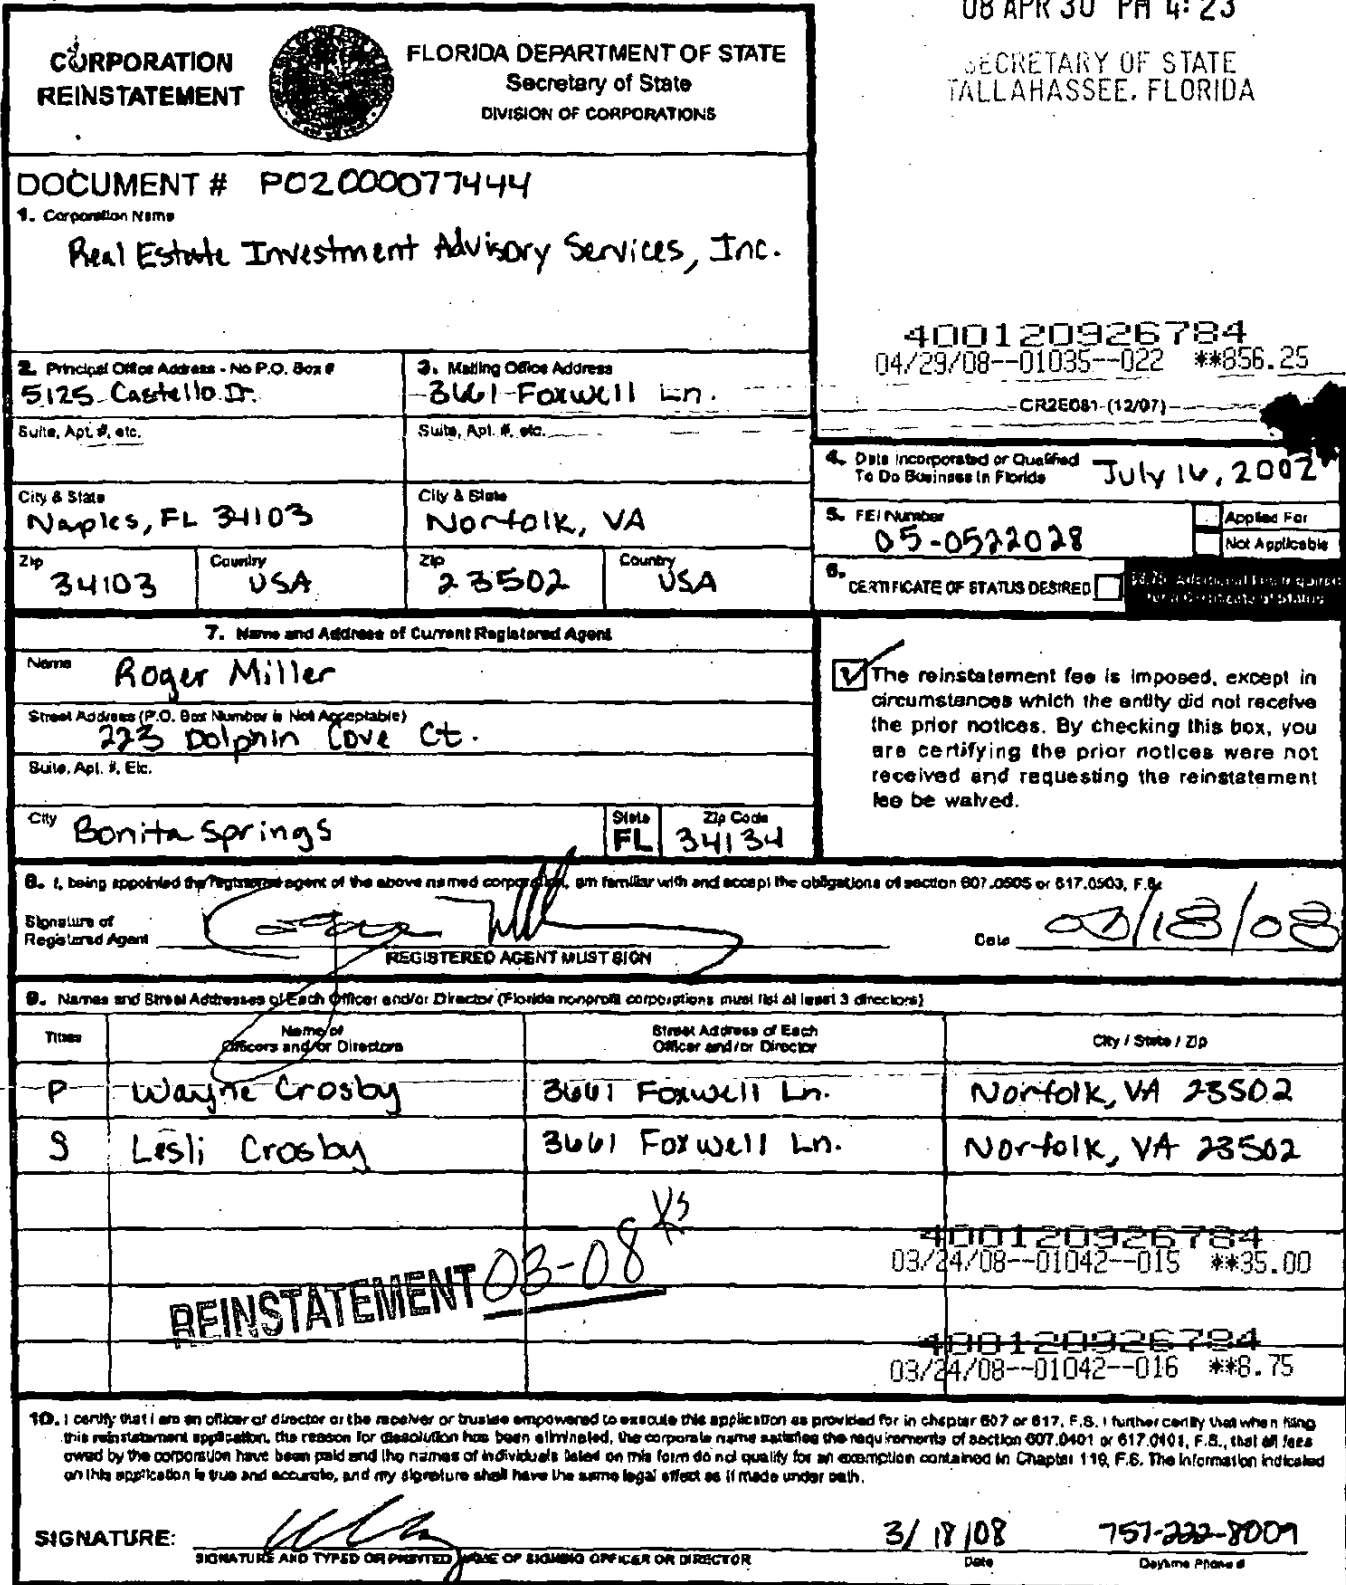 08 APR 30 PM 4:23
SECRETARY OF STATE
TALLAHASSEE, FLORIDA
CORPORATION
REINSTATEMENT
FLORIDA DEPARTMENT OF STATE
Secretary of State
DIVISION OF CORPORATIONS
DOCUMENT # P02000077444
1. Corporation Name
Real Estate Investment Advisory Services, Inc.
400120926784
04/29/08--01035--022 **856.25
2. Principal Office Address - No P.O. Box #
5125 Castello Dr.
3. Mailing Office Address
3661 Foxwell Ln.
CR2E081 (12/07)
Suite, Apt. #, etc.
Suite, Apt. #, etc.
4. Date Incorporated or Qualified
To Do Business in Florida
July 16, 2002
City & State
Naples, FL 34103
City & State
Norfolk, VA
5. FEI Number
05-0522028
Applied For
Not Applicable
Zip
34103
Country
USA
Zip
23502
Country
USA
6. CERTIFICATE OF STATUS DESIRED
$8.75 Additional Fee required
for a Certificate of Status
7. Name and Address of Current Registered Agent
Name
Roger Miller
Street Address (P.O. Box Number is Not Acceptable)
223 Dolphin Cove Ct.
Suite, Apt. #, Etc.
City
Bonita Springs
State
FL
Zip Code
34134
The reinstatement fee is imposed, except in
circumstances which the entity did not receive
the prior notices. By checking this box, you
are certifying the prior notices were not
received and requesting the reinstatement
fee be waived.
8. I, being appointed the registered agent of the above named corporation, am familiar with and accept the obligations of section 607.0505 or 617.0503, F.S.
Signature of
Registered Agent
REGISTERED AGENT MUST SIGN
Date
9. Names and Street Addresses of Each Officer and/or Director (Florida nonprofit corporations must list at least 3 directors)
Titles
Name of
Officers and/or Directors
Street Address of Each
Officer and/or Director
City / State / Zip
P Wayne Crosby 3661 Foxwell Ln. Norfolk, VA 23502
S Lesli Crosby 3661 Foxwell Ln. Norfolk, VA 23502
400120926784
03/24/08--01042--015 **35.00
REINSTATEMENT 03-08 KS
400120926784
03/24/08--01042--016 **8.75
10. I certify that I am an officer or director or the receiver or trustee empowered to execute this application as provided for in chapter 607 or 617, F.S. I further certify that when filing
this reinstatement application, the reason for dissolution has been eliminated, the corporate name satisfies the requirements of section 607.0401 or 617.0401, F.S., that all fees
owed by the corporation have been paid and the names of individuals listed on this form do not qualify for an exemption contained in Chapter 119, F.S. The information indicated
on this application is true and accurate, and my signature shall have the same legal effect as if made under oath.
SIGNATURE:
3/18/08
757-222-8009
SIGNATURE AND TYPED OR PRINTED NAME OF SIGNING OFFICER OR DIRECTOR
Date
Daytime Phone #